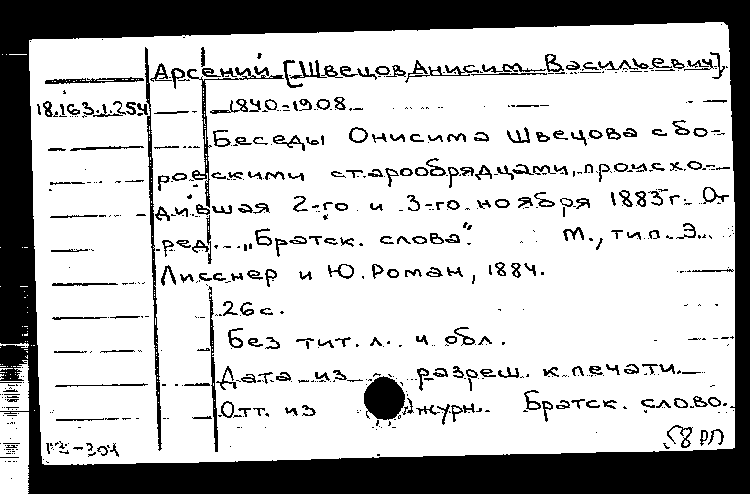 Арсений [Швецов, Анисим Васильевич],
18.163.1.254 1840-1908.
Беседы Онисима Швецова с бо-
ровскими старообрядцами, происхо-
дившая 2-го и 3-го ноября 1883 г. От
ред. „Братск. слова". М., тип. Э.
Лисснер и Ю. Роман, 1884.
26 с.
Без тит. л. и обл.
Дата из разреш. к печати.
Отт. из журн. Братск. слово.
58 РП